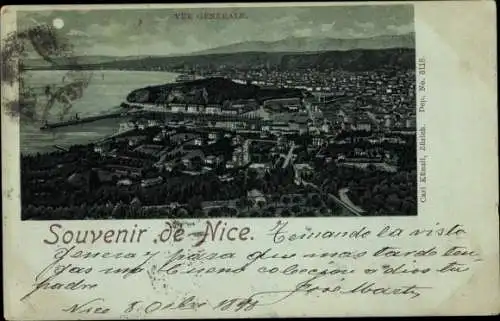 VUE GÉNÉRALE.
Carl Künzli, Zürich. Dep. No. 5118.
Souvenir de Nice.
Temando la vista
general para que mas tarde ten
gas una buena colección a dios tu
padre José Marti
Nice 8 Dibre 1898